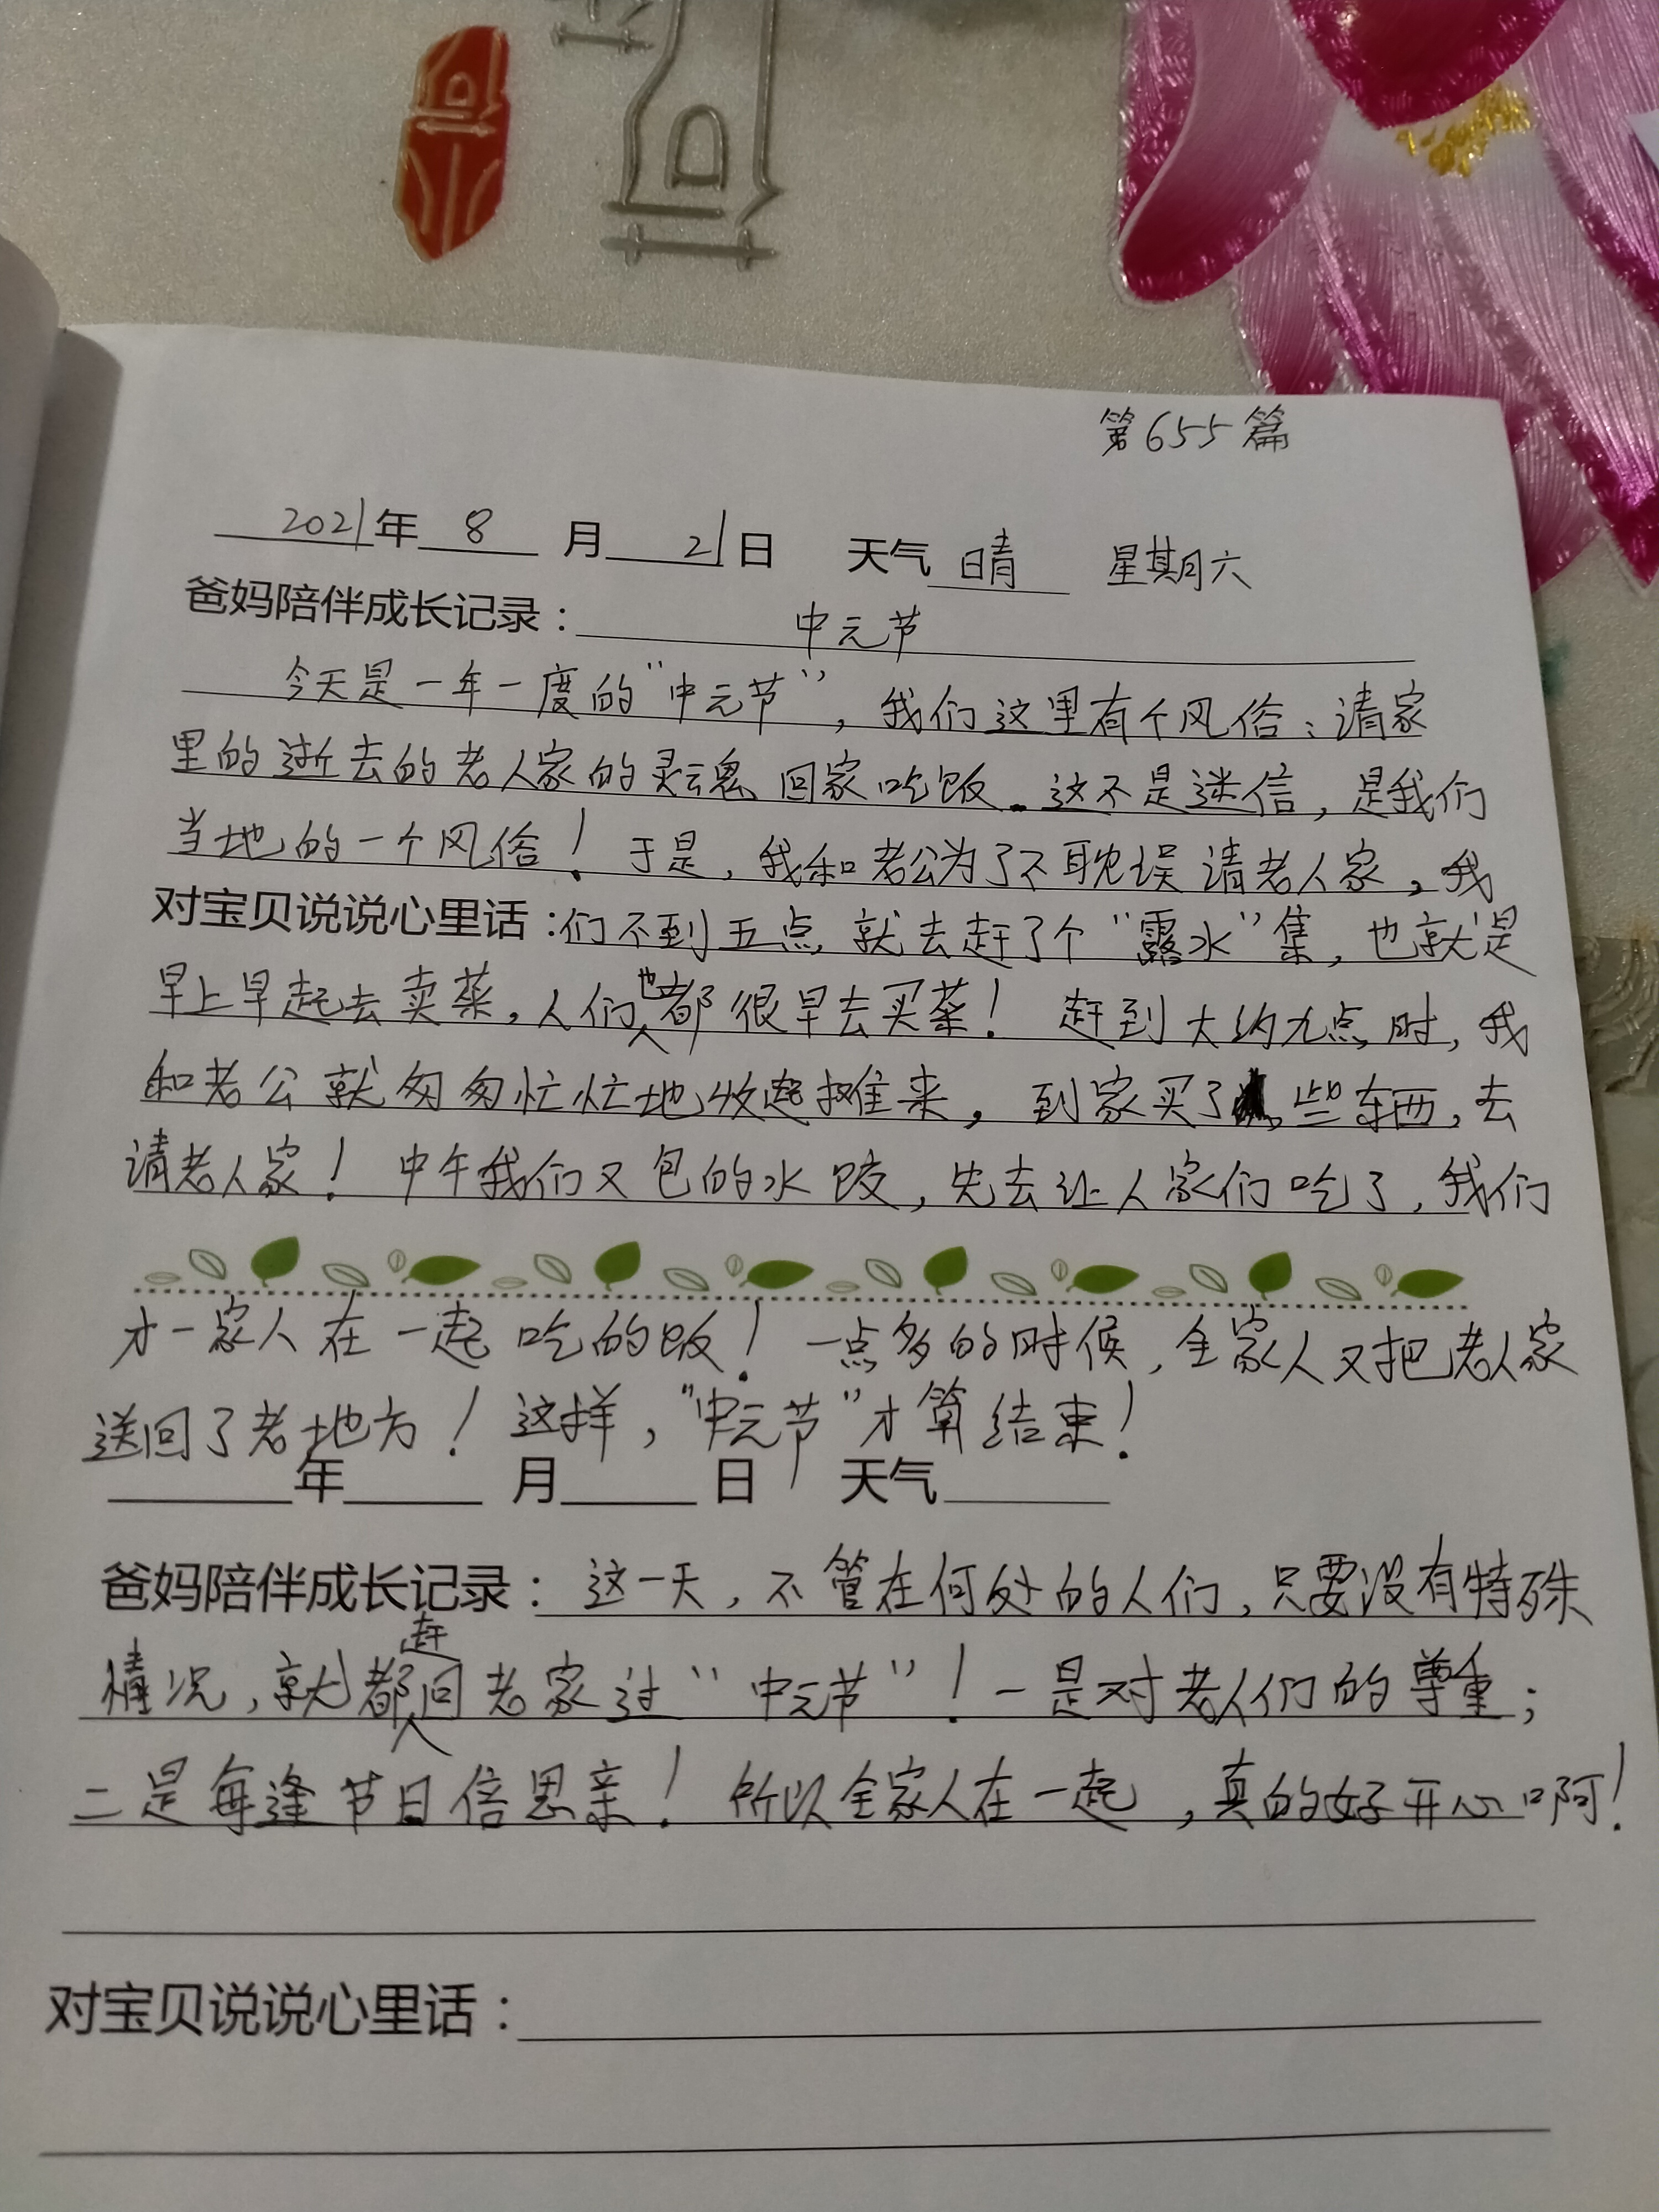 第655篇
2021年 8 月 21日 天气 晴 星期六
爸妈陪伴成长记录：中元节
今天是一年一度的“中元节”，我们这里有个风俗：请家
里的逝去的老人家的灵魂回家吃饭。这不是迷信，是我们
当地的一个风俗！于是，我和老公为了不耽误请老人家，我
对宝贝说说心里话：们不到五点就去赶了个“露水”集，也就是
早上早起去卖菜，人们也都很早去买菜！赶到大约九点时，我
和老公就匆匆忙忙地收起摊来，到家买了些东西，去
请老人家！中午我们又包的水饺，先去让人家们吃了，我们
才一家人在一起吃的饭！一点多的时候，全家人又把老人家
送回了老地方！这样，“中元节”才算结束！
年 月 日 天气
爸妈陪伴成长记录：这一天，不管在何处的人们，只要没有特殊
情况，就都赶回老家过“中元节”！一是对老人们的尊重；
二是每逢节日倍思亲！所以全家人在一起，真的好开心啊！
对宝贝说说心里话：